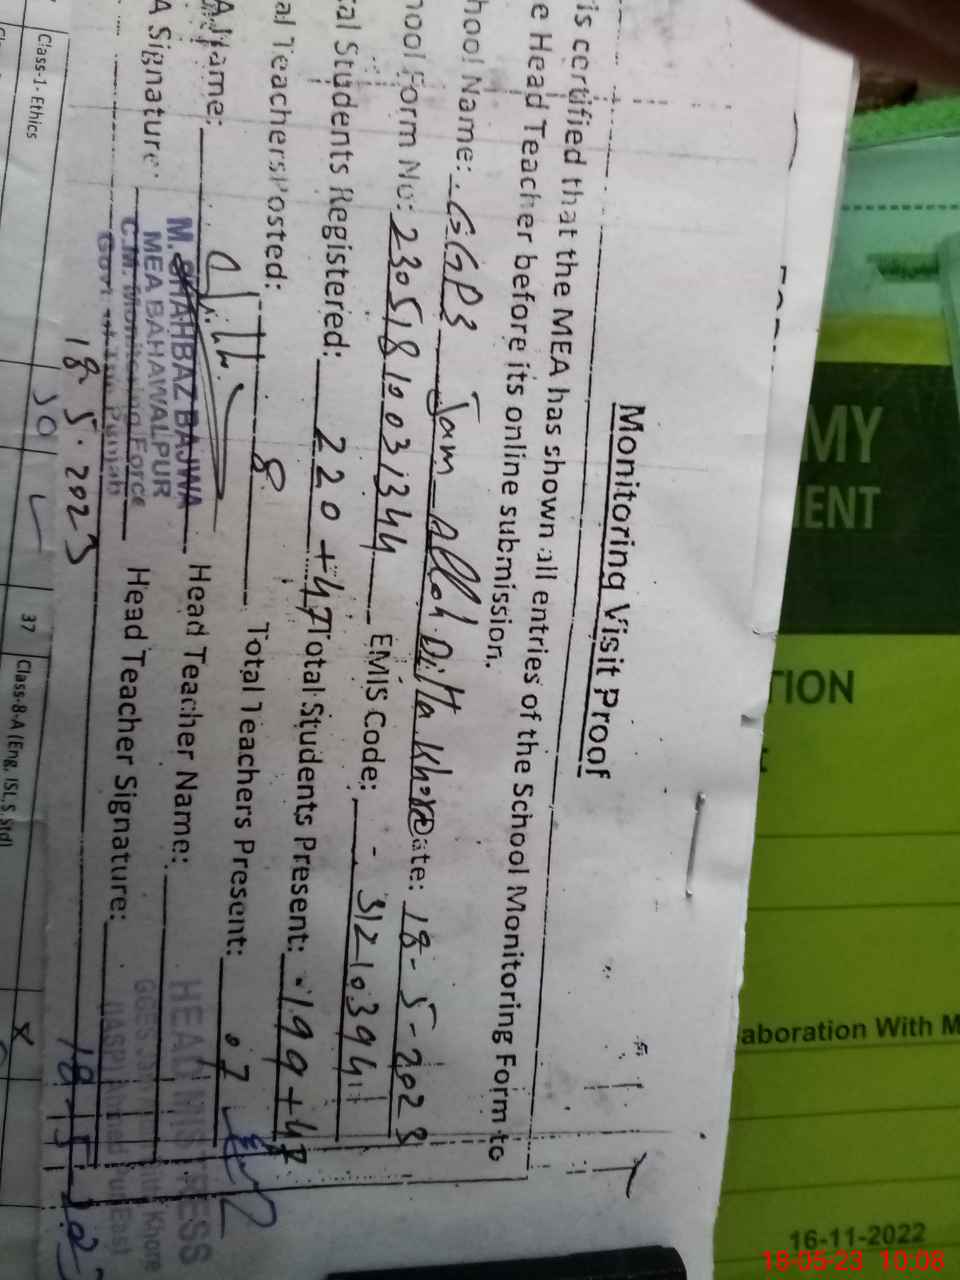 Monitoring Visit Proof
is certified that the MEA has shown all entries of the School Monitoring Form to
e Head Teacher before its online submission.
hool Name: GGPS Jam Allah Ditta Khora Date: 18-5-2023
hool Form No: 23051810031344 EMIS Code: - 31210394
al Students Registered: 220+47 Total Students Present: 199+47
al Teachers Posted: 8 Total Teachers Present: 7
A Name: M. SHAHBAZ BAJWA Head Teacher Name: HEADMISTRESS
MEA BAHAWALPUR
A Signature: C.M. Monitoring Force Head Teacher Signature:
Govt of The Punjab
18-5-2023 18-5-202
Class-1- Ethics 30 37 Class-8-A (Eng, ISL,S.Std) X
MY
MENT
TION
aboration With M
16-11-2022
18-05-23 10:08